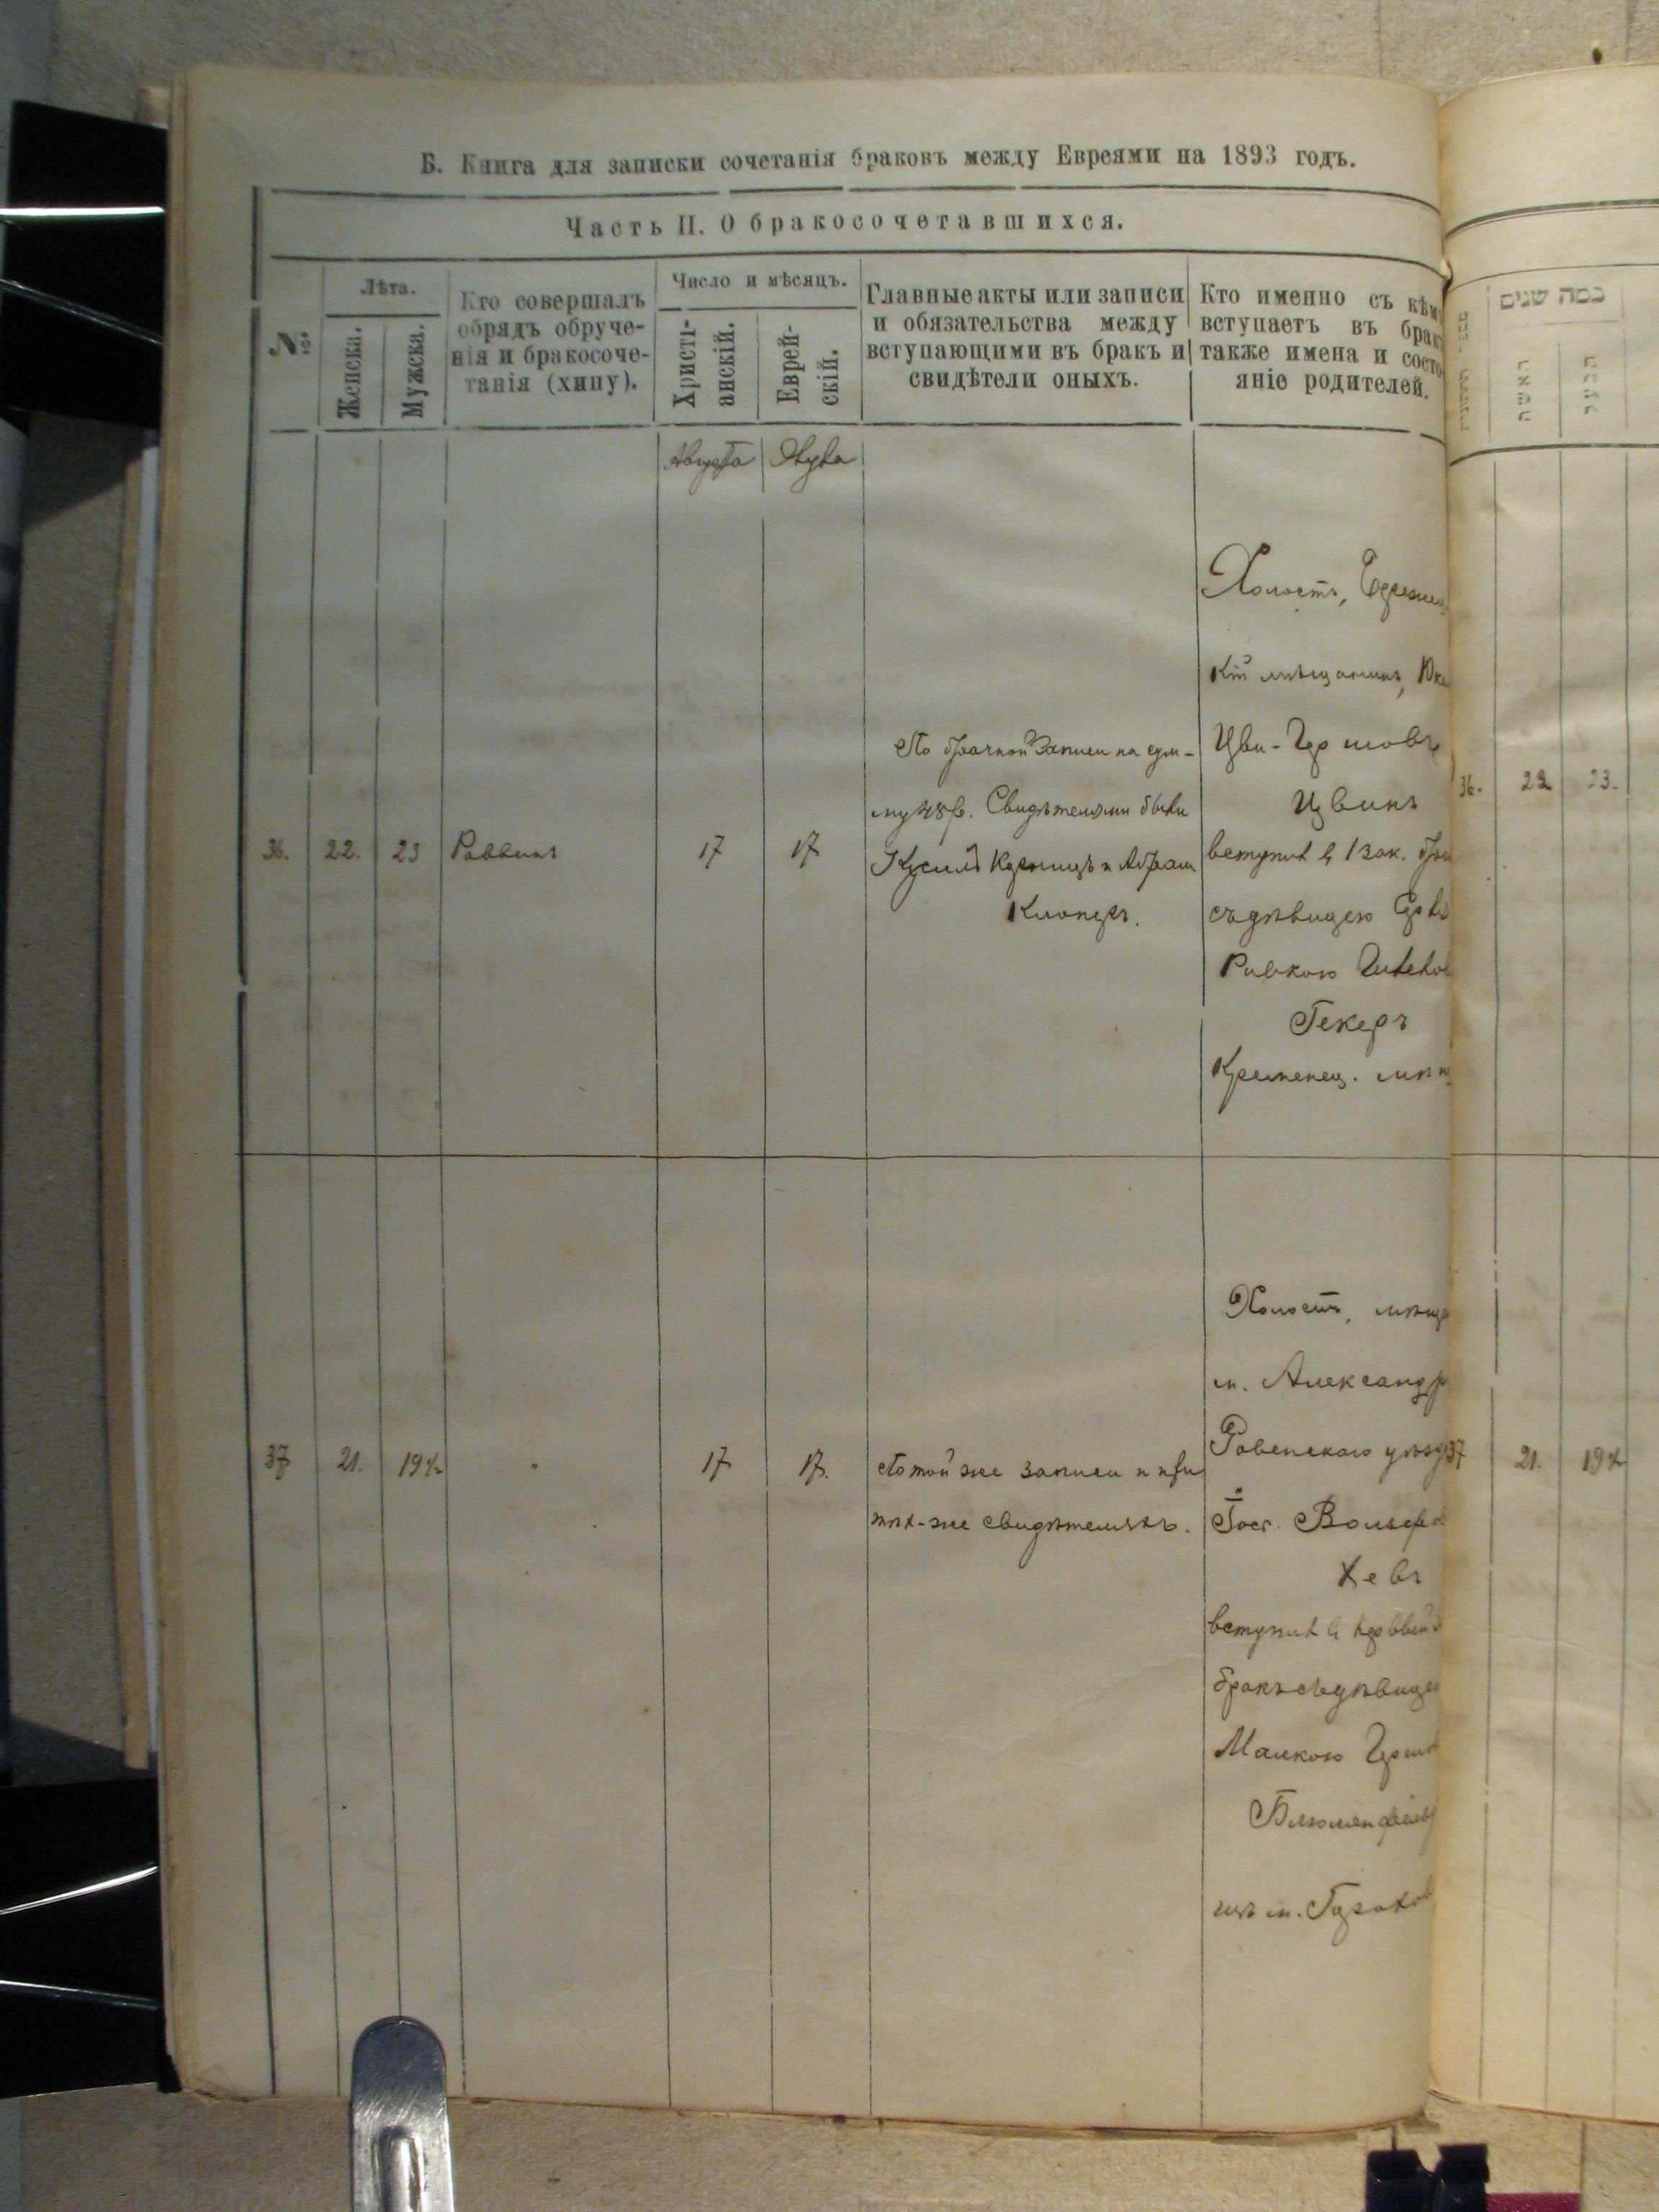 Б. Книга для записки сочетанія браковъ между Евреями на 1893 годъ.
Часть II. О бракосочетавшихся.
№
Лѣта.
Женска.
Мужска.
Кто совершалъ
обрядъ обруче-
нія и бракосоче-
танія (хипу).
Число и мѣсяцъ.
Христі-
анскій.
Еврей-
скій.
Главные акты или записи
и обязательства между
вступающими въ бракъ и
свидѣтели оныхъ.
Кто именно съ кѣмъ
вступаетъ въ брак
также имена и состо
яніе родителей.
כמה שנים
האשה
Августа
36.
22.
23
Раввинъ
17
17
По брачной записи на сум-
му 48 р. Свидѣтелями были
и Абрам
Холостъ,
кій мѣщанинъ,
Цви-Гершовъ
Цвикъ
вступил въ 1 зак. бра
съ дѣвицею
Ривкою
Гекеръ
Кременец. мѣщ
36.
22
23.
37
21.
19½
"
17
17.
По той же записи и при
тѣх-же свидѣтеляхъ.
Холостъ, мѣща
м. Александр
Ровенскаго уѣзд
Вольф
вступил въ первый
бракъ съ дѣвице
Малкою Герш
Блюменфельд
изъ м.
37
21.
19½